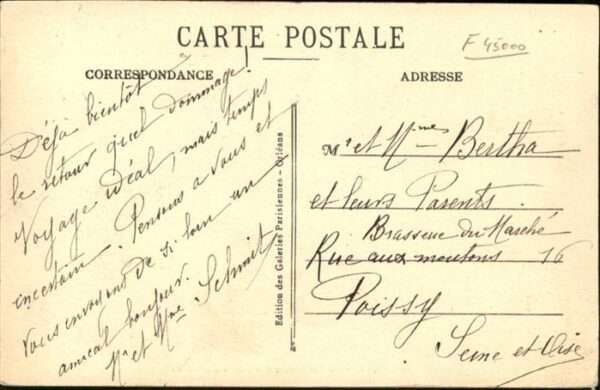 CARTE POSTALE
F 45000
CORRESPONDANCE
ADRESSE
Déjà bientôt
le retour quel dommage!
Voyage idéal, mais temps
incertain. Pensons à vous et
vous envoyons de si loin un
amical bonjour.
Mr et Mme Schmit
Edition des Galeries Parisiennes - Orléans
Mr et Mme Bertha
et leurs Parents.
Brasseur du Marché
Rue aux moutons 16
Poissy
Seine et Oise